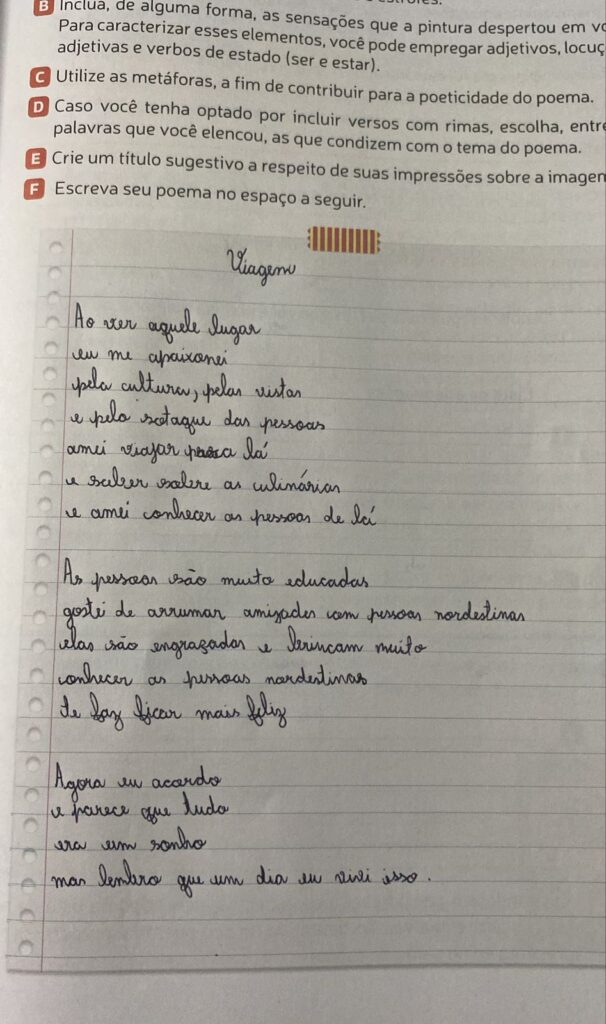 B Inclua, de alguma forma, as sensações que a pintura despertou em vo
Para caracterizar esses elementos, você pode empregar adjetivos, locuç
adjetivas e verbos de estado (ser e estar).
C Utilize as metáforas, a fim de contribuir para a poeticidade do poema.
D Caso você tenha optado por incluir versos com rimas, escolha, entre
palavras que você elencou, as que condizem com o tema do poema.
E Crie um título sugestivo a respeito de suas impressões sobre a imagem
F Escreva seu poema no espaço a seguir.
Viagem
Ao ver aquele lugar
eu me apaixonei
pela cultura, pelas vistas
e pelo sotaque das pessoas
amei viajar para lá
e saber sobre as culinárias
e amei conhecer as pessoas de lá
As pessoas são muito educadas
gostei de arrumar amizades com pessoas nordestinas
elas são engraçadas e brincam muito
conhecer as pessoas nordestinas
te faz ficar mais feliz
Agora eu acordo
e parece que tudo
era um sonho
mas lembro que um dia eu vivi isso.